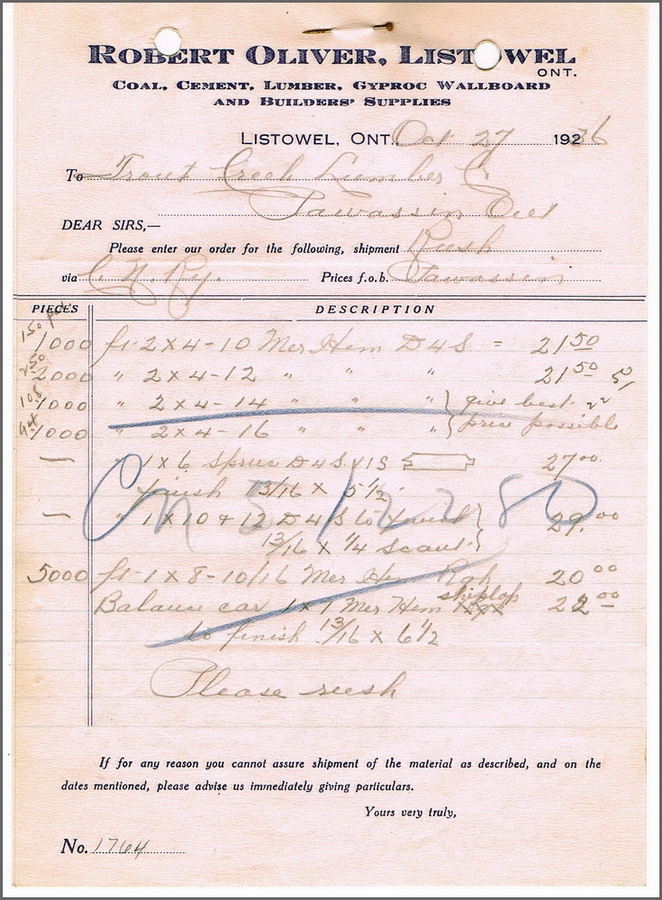 ROBERT OLIVER, LISTOWEL
ONT.
COAL, CEMENT, LUMBER, GYPROC WALLBOARD
AND BUILDERS' SUPPLIES
LISTOWEL, ONT., Oct 27 192
To Trout Creek Lumber C
Tawassin Ont
DEAR SIRS,—
Please enter our order for the following, shipment Rush
via C. N. Ry. Prices f.o.b. Tawassin
PIECES DESCRIPTION
150
1000 ft. 2 x 4-10 Mer Hem D4S = 21 50
250
2000 " 2 x 4-12 " " " 21 50
1000 " 2 x 4-14 " " " } give best
1000 " 2 x 4-16 " " " } price possible
— " 1 x 6 Spruce D4S V1S 27 00
finish 13/16 x 5 1/2
— " 1 x 10 + 12 D4S to } 29.00
13/16 x 1/4 scant }
5000 ft. 1 x 8-10/16 Mer Hem Rgh 20 00
shiplap
Balance car 1 x 7 Mer Hem 22 00
to finish 13/16 x 6 1/2
Please rush
If for any reason you cannot assure shipment of the material as described, and on the
dates mentioned, please advise us immediately giving particulars.
Yours very truly,
No. 1764